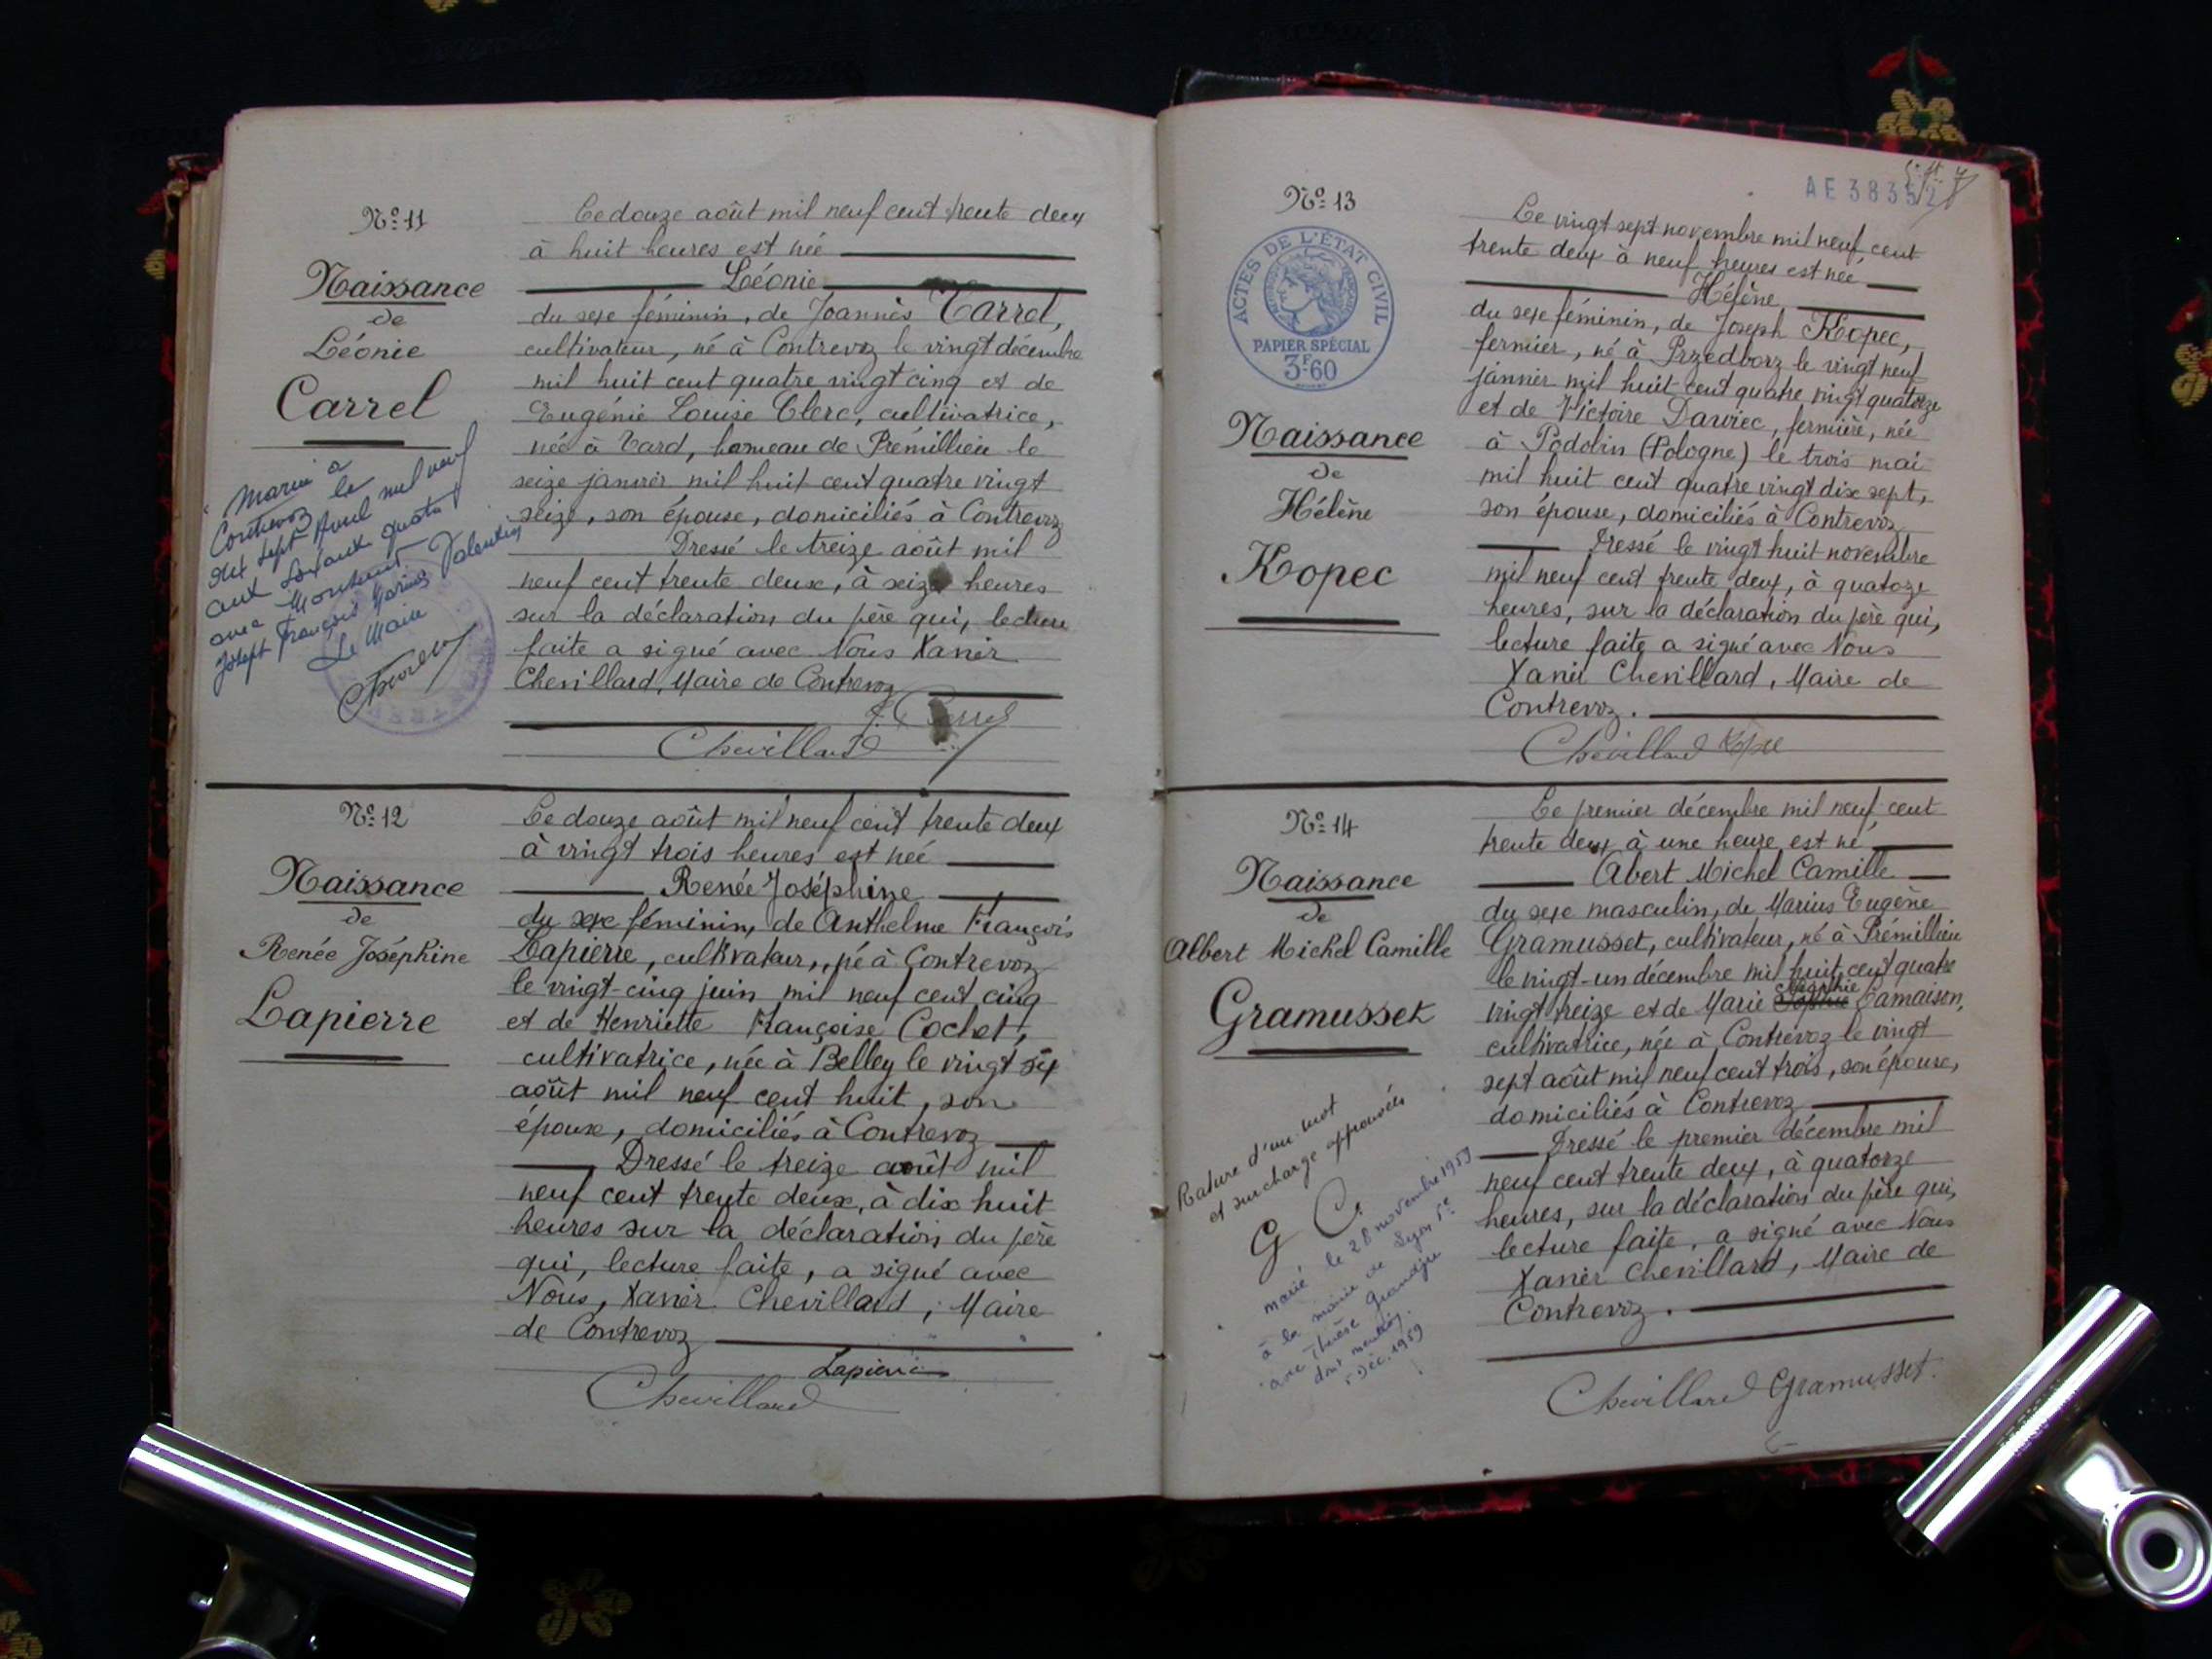 Nº 11
Naissance
de
Léonie
Carrel
Le douze août mil neuf cent trente deux
à huit heures est née
Léonie
du sexe féminin, de Joannès Carrel,
cultivateur, né à Contrevoz le vingt décembre
mil huit cent quatre vingt cinq et de
Eugénie Louise Clerc, cultivatrice,
née à Vard, hameau de Prémillieu le
seize janvier mil huit cent quatre vingt
seize, son épouse, domiciliés à Contrevoz
Dressé le treize août mil
neuf cent trente deux, à seize heures
sur la déclaration du père qui, lecture
faite a signé avec Nous Xavier
Chevillard, Maire de Contrevoz
Chevillard
Marié à
Contrevoz le
dix sept Avril mil neuf
cent soixante quatre
avec
Joseph François Marius Valentin
Le Maire
Nº 12
Naissance
de
Renée Joséphine
Lapierre
Le douze août mil neuf cent trente deux
à vingt trois heures est née
Renée Joséphine
du sexe féminin, de Anthelme François
Lapierre, cultivateur, né à Contrevoz
le vingt-cinq juin mil neuf cent cinq
et de Henriette Françoise Cochet,
cultivatrice, née à Belley le vingt six
août mil neuf cent huit, son
épouse, domiciliés à Contrevoz
Dressé le treize août mil
neuf cent trente deux, à dix huit
heures sur la déclaration du père
qui, lecture faite, a signé avec
Nous, Xavier Chevillard, Maire
de Contrevoz
Lapierre
Chevillard
AE 38352
Nº 13
ACTES DE L'ÉTAT CIVIL
PAPIER SPÉCIAL
3F60
Naissance
de
Hélène
Kopec
Le vingt sept novembre mil neuf cent
trente deux à neuf heures est née
Hélène
du sexe féminin, de Joseph Kopec,
fermier, né à Przedborz le vingt neuf
janvier mil huit cent quatre vingt quatorze
et de Victoire Dawiec, fermière, née
à Podolin (Pologne) le trois mai
mil huit cent quatre vingt dix sept,
son épouse, domiciliés à Contrevoz
Dressé le vingt huit novembre
mil neuf cent trente deux, à quatoze
heures, sur la déclaration du père qui,
lecture faite a signé avec Nous
Xavier Chevillard, Maire de
Contrevoz.
Chevillard Kopec
Nº 14
Naissance
de
Albert Michel Camille
Gramusset
Le premier décembre mil neuf cent
trente deux à une heure est né
Albert Michel Camille
du sexe masculin, de Marius Eugène
Gramusset, cultivateur, né à Prémillieu
le vingt-un décembre mil huit cent quatre
vingt treize et de Marie Camaison,
cultivatrice, née à Contrevoz le vingt
sept août mil neuf cent trois, son épouse,
domiciliés à Contrevoz
Dressé le premier décembre mil
neuf cent trente deux, à quatorze
heures, sur la déclaration du père qui,
lecture faite, a signé avec Nous
Xavier Chevillard, Maire de
Contrevoz.
Chevillard Gramusset
Rature d'un mot
et surcharge approuvées
G C
marié le 28 novembre 1959
à la mairie de Lyon 5e
avec Thérèse Grandjean
dont mention.
5 Déc. 1959